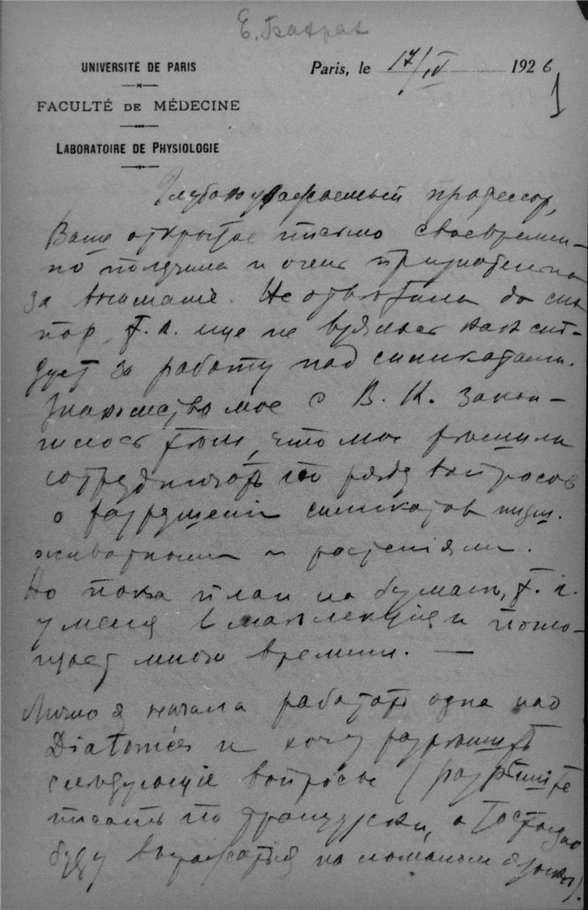 Е. Бахрах
UNIVERSITÉ DE PARIS
FACULTÉ DE MÉDECINE
LABORATOIRE DE PHYSIOLOGIE
Paris, le 17/IV 1926
1
Глубокоуважаемый профессор,
Ваше открытое письмо своевремен-
но получила и очень признательна
за внимание. Не ответила до сих
пор, т.к. еще не взялась как сле-
дует за работу над силикатами.
Знакомство мое с В. К. закон-
чилось тем, что мы решили
сотрудничать по ряду вопросов
о разрушении силикатов низш.
животными и растеніями.
Но пока план на бумаге, т.к.
у меня лекция и
много времени. —
Лично я начала работать одна над
Diatomées и хочу разрешить
следующіе вопросы (разрешите
писать по французски, а то трудно
буду выражаться на ломаном языке).